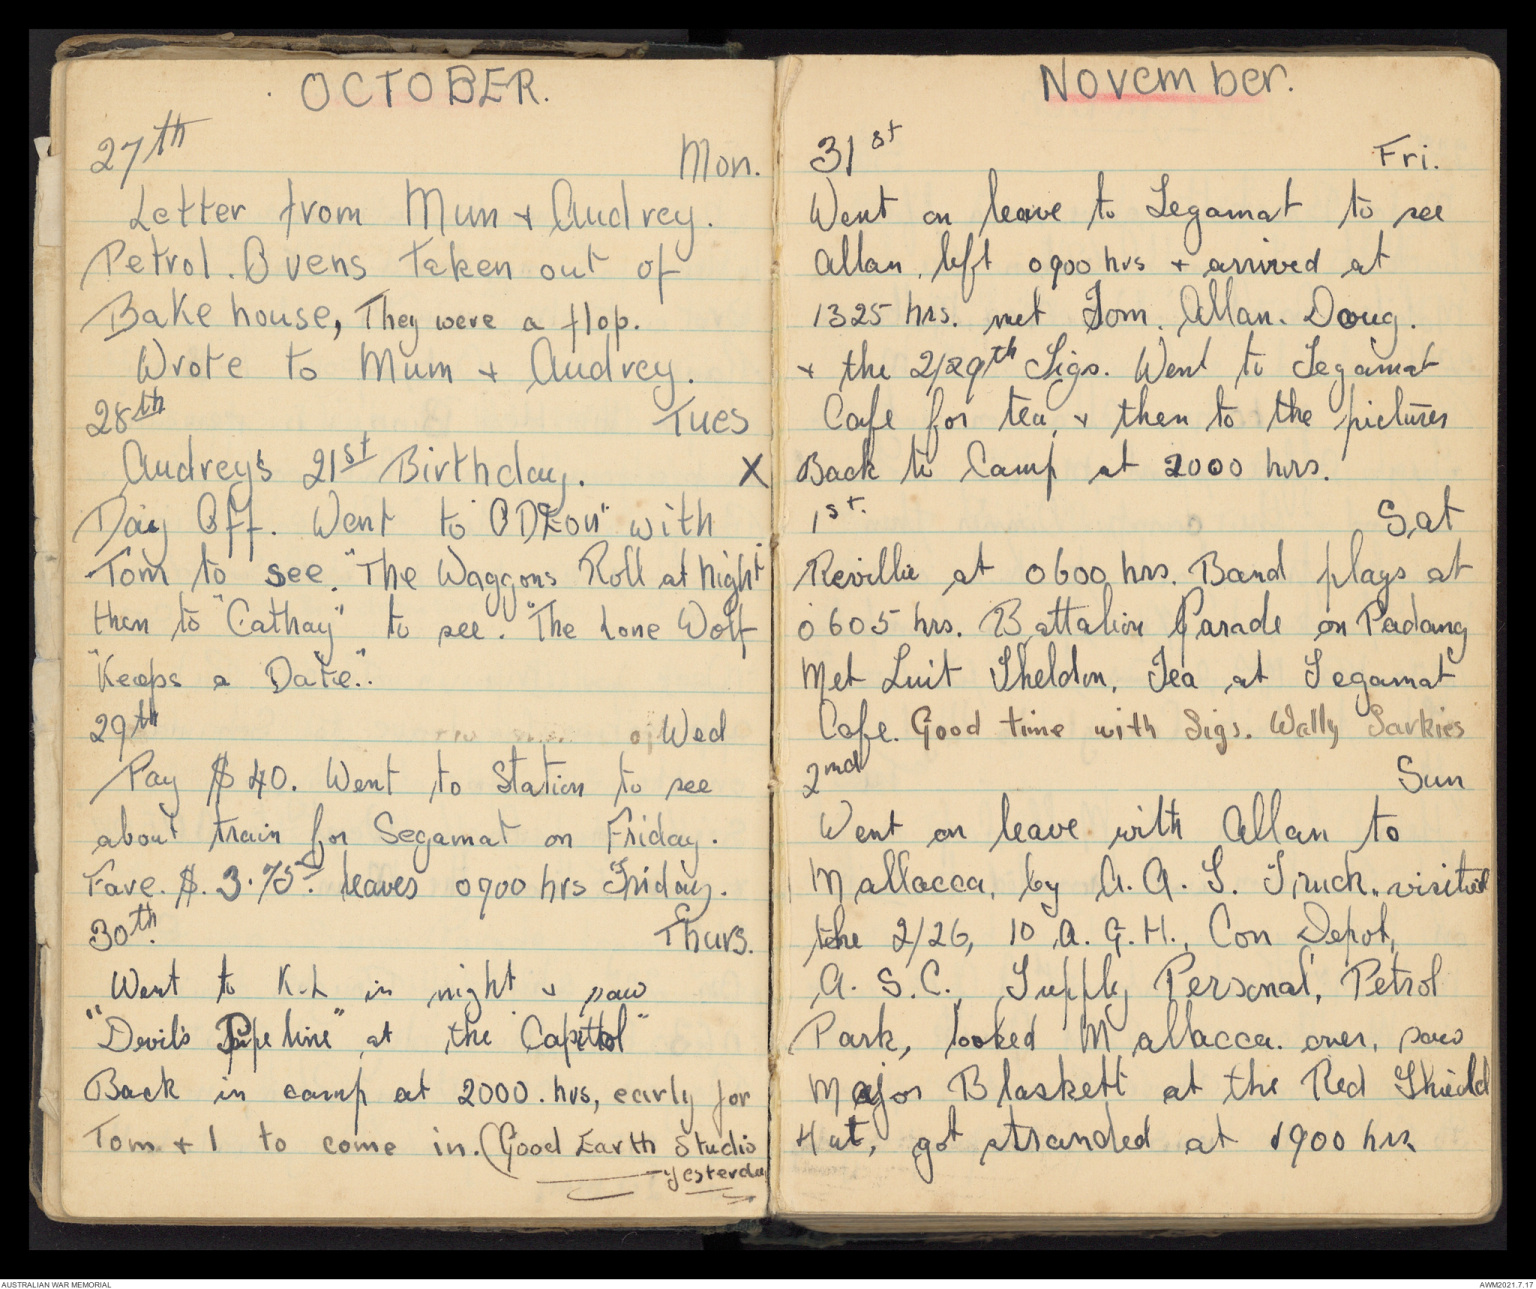 OCTOBER.
27th Mon.
Letter from Mum & Audrey.
Petrol. Ovens Taken out of
Bake house, They were a flop.
Wrote to Mum & Audrey.
28th Tues
Audrey's 21st Birthday. X
Day Off. Went to "ODEon" with
Tom to see. "The Waggons Roll at Night"
then to "Cathay" to see. "The Lone Wolf
"Keeps a Date".
29th Wed
Pay $40. Went to Station to see
about train for Segamat on Friday.
Fare. $. 3.75. leaves 0900 hrs Friday.
30th. Thurs.
Went to K.L in night & saw
"Devil's Pipe line" at the "Capittol"
Back in camp at 2000. hrs, early for
Tom & I to come in. (Good Earth Studio
yesterday
November.
31st Fri.
Went on leave to Segamat to see
Allan, left 0900 hrs & arrived at
1325 hrs. met Tom. Allan. Doug.
& the 2/29th Sigs. Went to Segamat
Cafe for tea, & then to the pictures
Back to Camp at 2000 hrs.
1st. Sat
Revillie at 0600 hrs. Band plays at
0605 hrs. Battalion Parade on Padang
Met Luit Sheldon, Tea at Segamat
Cafe. Good time with Sigs. Wally Sarkies
2nd Sun
Went on leave with Allan to
Mallacca, by A.A.S. Truck. visited
the 2/26, 10 A.G.H., Con Depot,
A.S.C. Supply Personal, Petrol
Park, looked Mallacca. over, saw
Major Blaskett at the Red Shield
Hut, got stranded at 1900 hrs
AUSTRALIAN WAR MEMORIAL
AWM2021.7.17